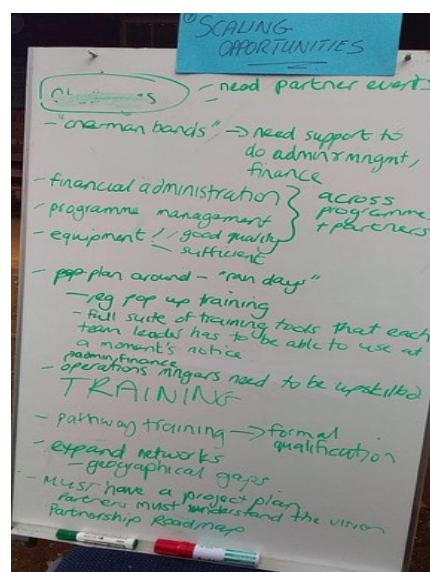 ① SCALING
OPPORTUNITIES
- need partner events
-
- "one-man bands" → need support to
do admin & mngmt,
finance
- financial administration
- programme management
- equipment !! good quality
- sufficient
across
programme
+ partners
- plan around - "rain days"
- eg pop up training
- full suite of training tools that each
team leader has to be able to use at
a moment's notice
admin/finance
- operations mngers need to be upskilled
TRAINING
- pathway training → formal
qualification
- expand networks
- geographical gaps
- MUST have a project plan
Partners must understand the vision
Partnership Roadmap